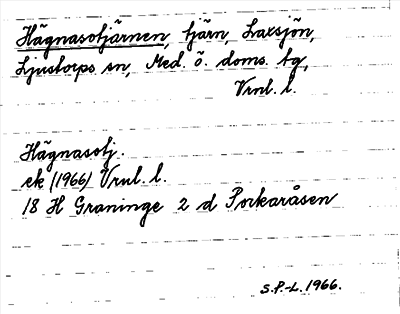 Hägnasotjärnen, tjärn, Laxsjön,
Ljustorps sn, Med. ö. doms. tg,
Vrnl. l.
Hägnasotj.
ek (1966) Vrnl. l.
18 H Graninge 2 d Porkaråsen
S.P.-L. 1966.